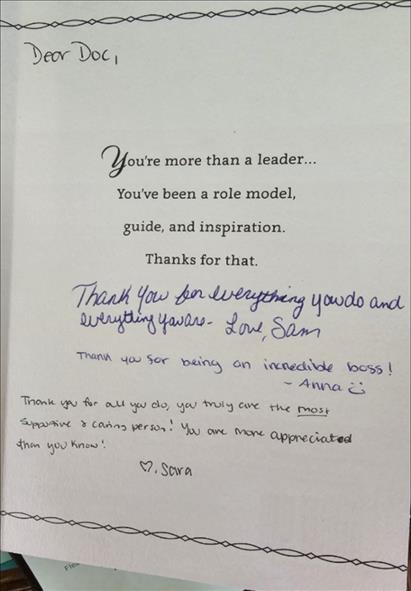 Dear Doc,
You're more than a leader...
You've been a role model,
guide, and inspiration.
Thanks for that.
Thank You for everything you do and
everything you are- Love, Sam
Thank you for being an incredible boss!
- Anna
Thank you for all you do, you truly are the most
supportive & caring person! You are more appreciated
than you know!
♡, Sara